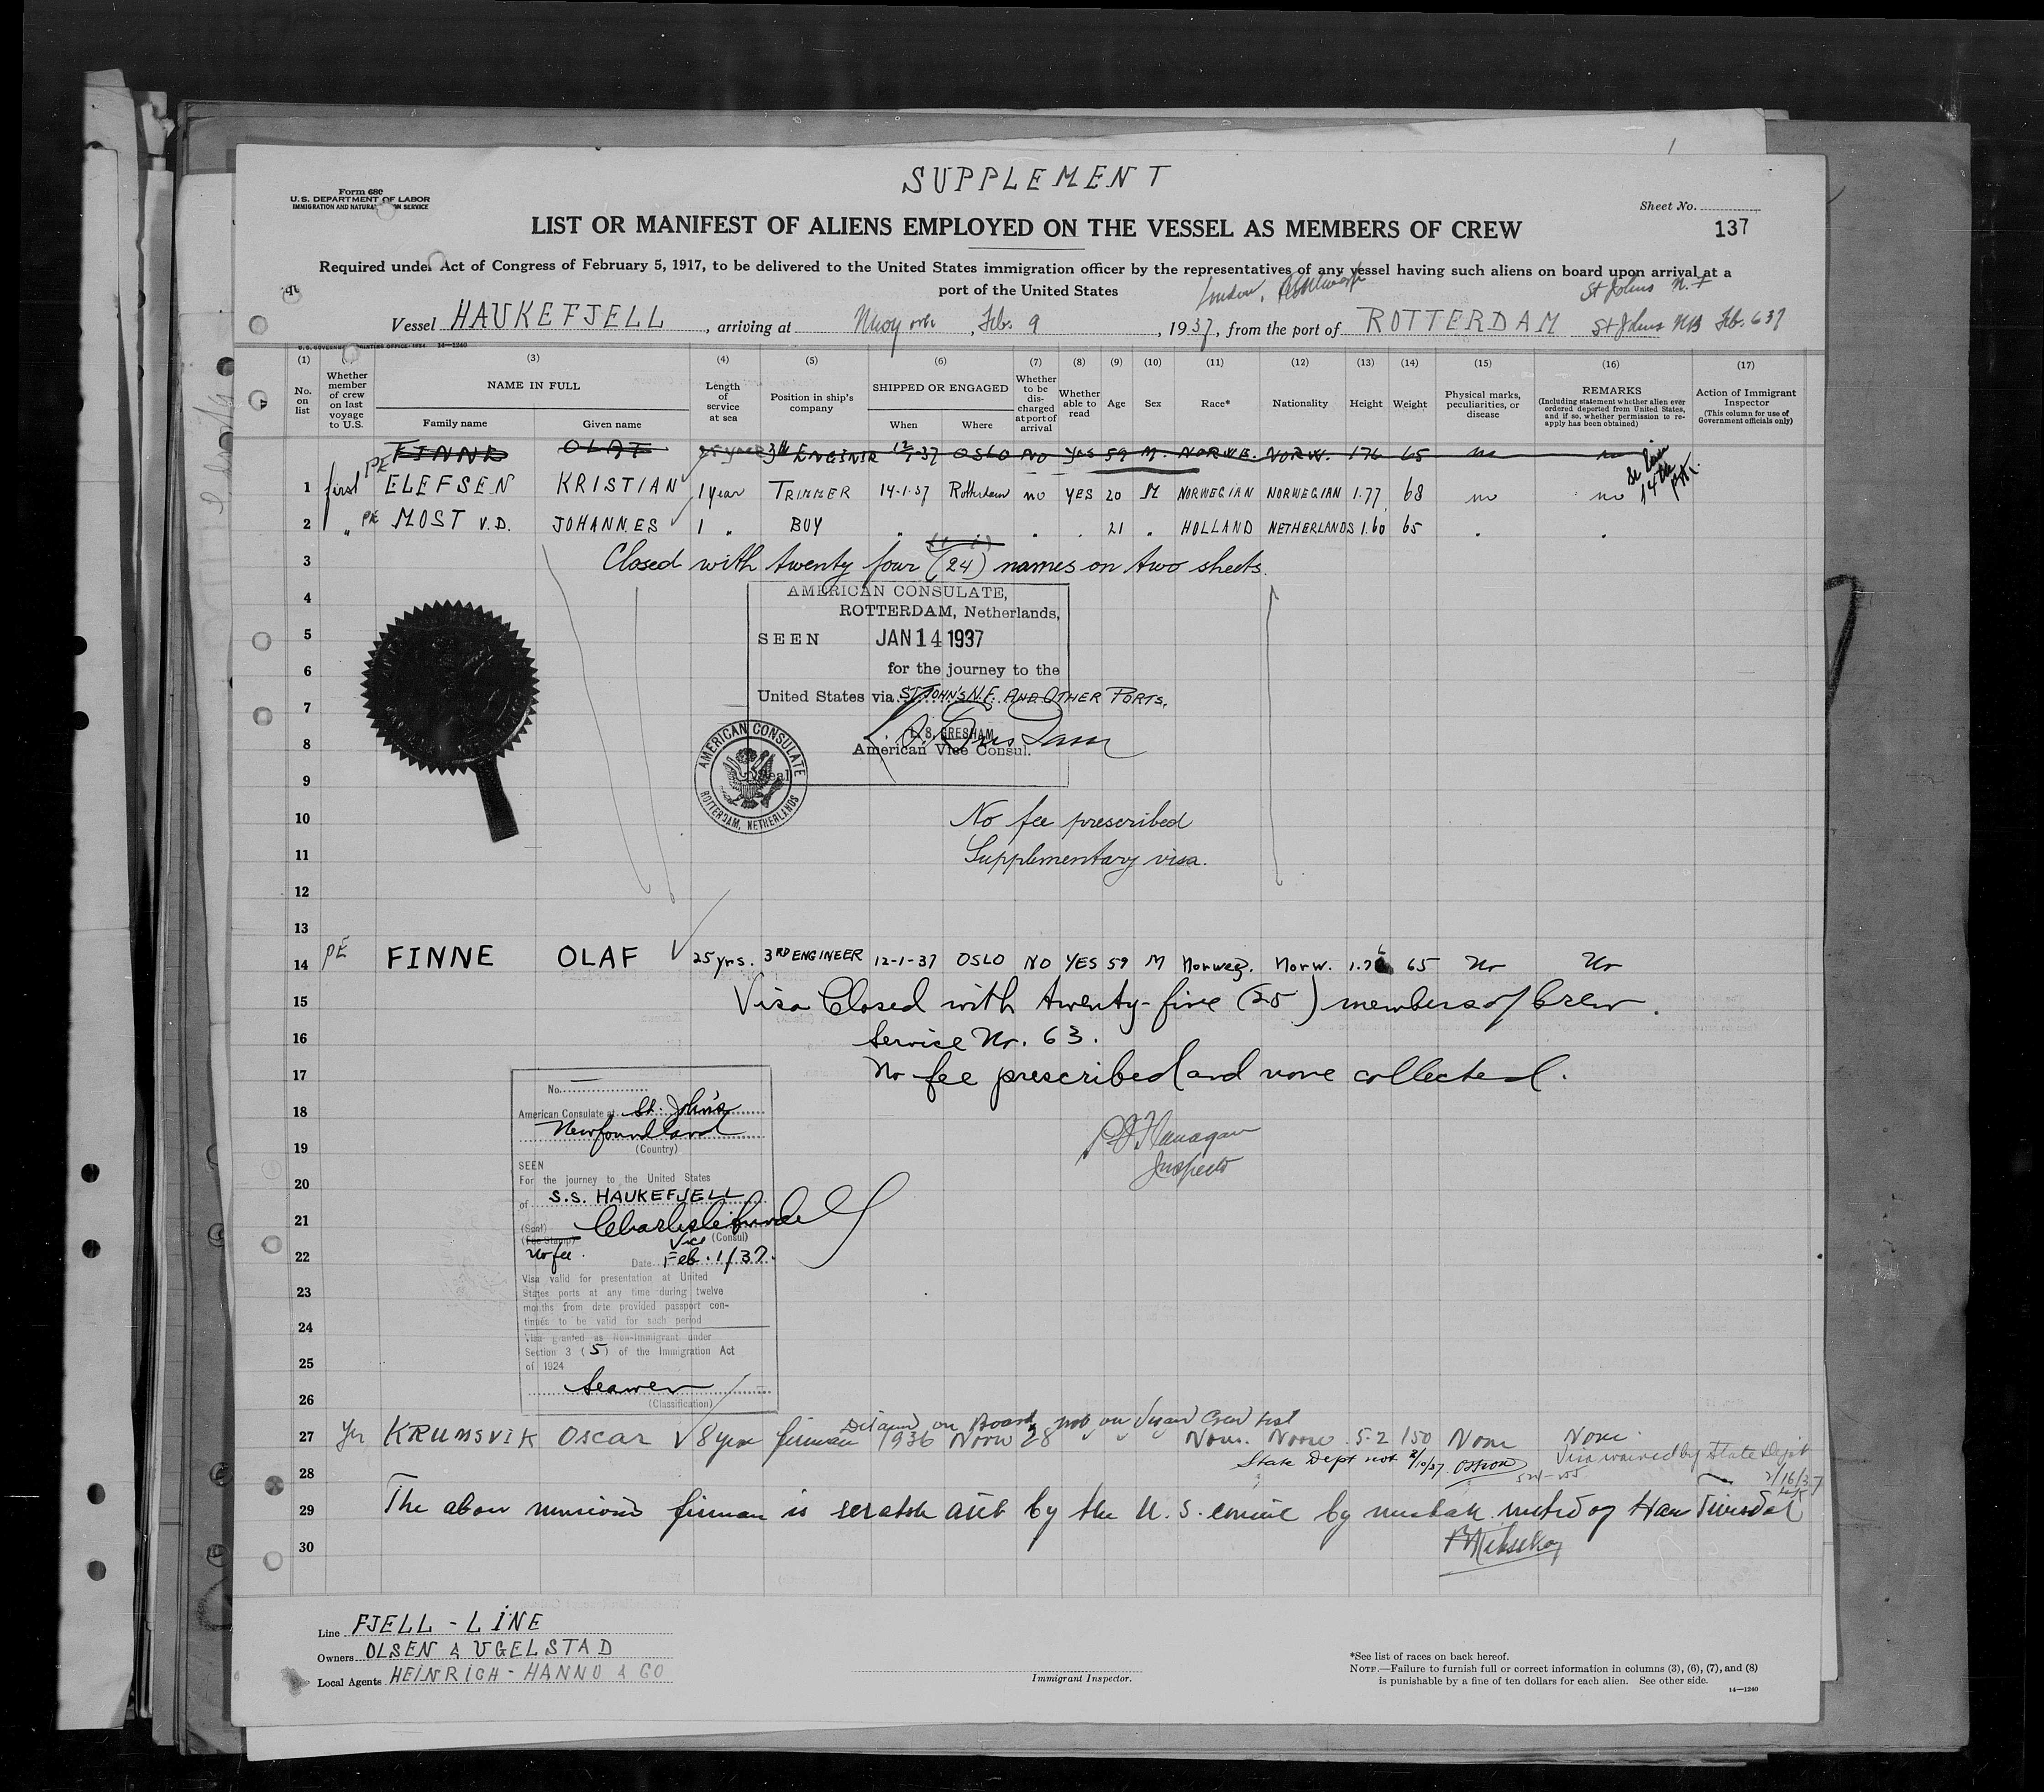 SUPPLEMENT
Form 680
U.S. DEPARTMENT OF LABOR
IMMIGRATION AND SERVICE
Sheet No.
137
LIST OR MANIFEST OF ALIENS EMPLOYED ON THE VESSEL AS MEMBERS OF CREW
Required under Act of Congress of February 5, 1917, to be delivered to the United States immigration officer by the representatives of any vessel having such aliens on board upon arrival at a
port of the United States
London, St Johns N.F
Vessel HAUKEFJELL, arriving at Feb. 9, 1937, from the port of ROTTERDAM St Johns NB Feb. 6 37
U.S. GOVERNMENT PRINTING OFFICE: 1934 14—1240
(1) (3) (4) (5) (6) (7) (8) (9) (10) (11) (12) (13) (14) (15) (16) (17)
No. on list
Whether member of crew on last voyage to U.S.
NAME IN FULL
Family name Given name
Length of service at sea
Position in ship's company
SHIPPED OR ENGAGED
When Where
Whether to be discharged at port of arrival
Whether able to read
Age
Sex
Race*
Nationality
Height
Weight
Physical marks, peculiarities, or disease
REMARKS
(Including statement whether alien ever ordered deported from United States, and if so, whether permission to reapply has been obtained)
Action of Immigrant Inspector
(This column for use of Government officials only)
FINNE OLAF 25 years 3th ENGINER 12/1-37 OSLO NO yes 59 M. NORWE. NORW. 176 65 no no
1 first PE ELEFSEN KRISTIAN 1 year TRIMMER 14-1-37 Rotterdam no YES 20 M NORWEGIAN NORWEGIAN 1.77 68 no no
2 " PE MOST V.D. JOHANNES 1 " BUY " " " 21 " HOLLAND NETHERLANDS 1.60 65 " "
3 Closed with twenty four (24) names on two sheets.
4 AMERICAN CONSULATE,
ROTTERDAM, Netherlands,
5 SEEN JAN 14 1937
6 for the journey to the
United States via ST JOHN'S N.F. AND OTHER PORTS.
7
L. S. GRESHAM
8 American Vice Consul.
9 Seal
AMERICAN CONSULATE
ROTTERDAM, NETHERLANDS
10 No fee prescribed
11 Supplementary visa.
12
13
14 PE FINNE OLAF 25 yrs. 3RD ENGINEER 12-1-37 OSLO NO YES 59 M Norweg. Norw. 1.76 65 No No
15 Visa Closed with twenty-five (25) members of Crew.
16 Service No. 63.
17 No fee prescribed and none collected.
No.
18 American Consulate at St. John's
Newfoundland
P J Flanagan
19 (Country)
Inspector
SEEN
20 For the journey to the United States
of S.S. HAUKEFJELL
21 (Seal)
(Fee Stamp) Vice (Consul)
22 No fee. Date Feb. 1/37.
Visa valid for presentation at United
23 States ports at any time during twelve
months from date provided passport con-
tinues to be valid for such period
24 Visa granted as Non-Immigrant under
Section 3 (5) of the Immigration Act
25 of 1924
Seamen
26 (Classification)
Detained on Board not on Visaed Crew List
27 Yes KRUMSVIK Oscar 8 year fireman 1936 Norw 28 Norw. Norw 5-2 150 None None.
State Dept not 2/10/37 Visa waived by State Dept
28 2/16/37
29 The above fireman is scratch out by the U.S. by
30
Line FJELL - LINE
Owners OLSEN & UGELSTAD
Local Agents HEINRICH - HANNO & CO
Immigrant Inspector.
*See list of races on back hereof.
NOTE.—Failure to furnish full or correct information in columns (3), (6), (7), and (8)
is punishable by a fine of ten dollars for each alien. See other side.
14—1240